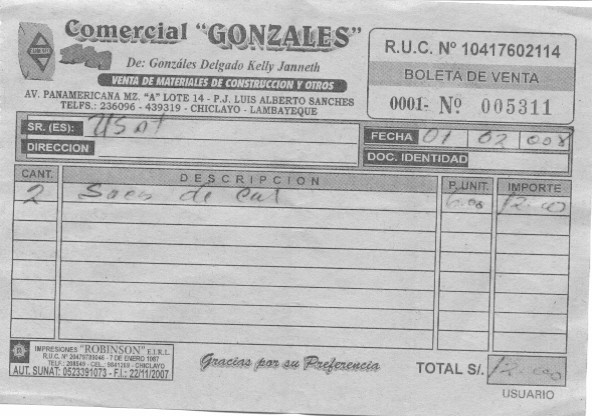 Comercial "GONZALES"
De: Gonzáles Delgado Kelly Janneth
VENTA DE MATERIALES DE CONSTRUCCION Y OTROS
AV. PANAMERICANA MZ. "A" LOTE 14 - P.J. LUIS ALBERTO SANCHES
TELFS.: 236096 - 439319 - CHICLAYO - LAMBAYEQUE
R.U.C. Nº 10417602114
BOLETA DE VENTA
0001- Nº 005311
SR. (ES): USAT
DIRECCION
FECHA 01 02 008
DOC. IDENTIDAD
CANT. DESCRIPCION P. UNIT. IMPORTE
2 Sacos de cal 6.00 12.00
IMPRESIONES "ROBINSON" E.I.R.L.
AUT. SUNAT: 0523391073 - F.I.: 22/11/2007
Gracias por su Preferencia
TOTAL S/. 12.00
USUARIO